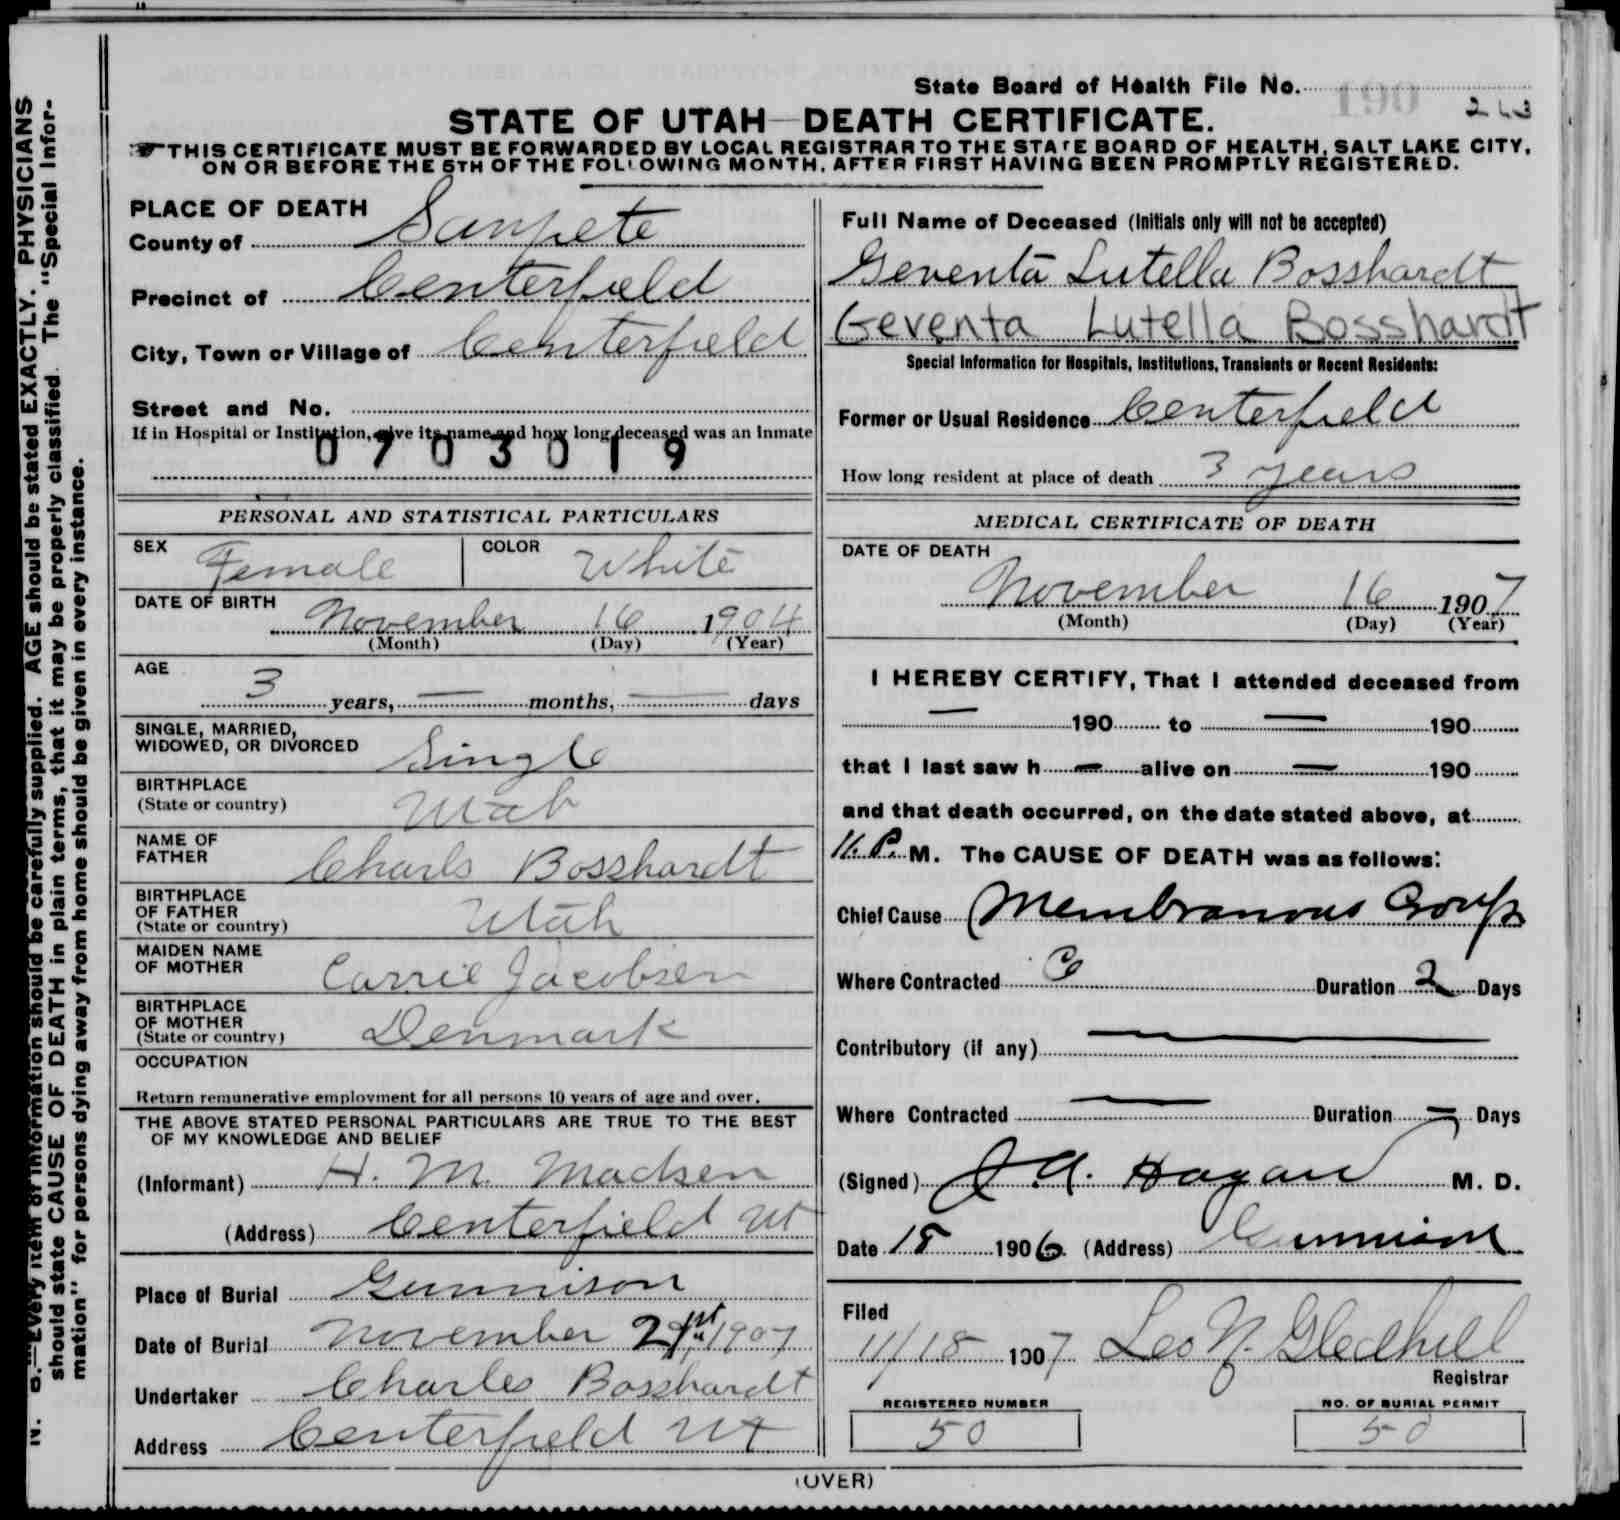 State Board of Health File No. 190 243
STATE OF UTAH—DEATH CERTIFICATE.
THIS CERTIFICATE MUST BE FORWARDED BY LOCAL REGISTRAR TO THE STATE BOARD OF HEALTH, SALT LAKE CITY,
ON OR BEFORE THE 5TH OF THE FOLLOWING MONTH, AFTER FIRST HAVING BEEN PROMPTLY REGISTERED.
PLACE OF DEATH
County of Sanpete
Precinct of Centerfield
City, Town or Village of Centerfield
Street and No.
If in Hospital or Institution, give its name and how long deceased was an Inmate
0703019
PERSONAL AND STATISTICAL PARTICULARS
SEX Female COLOR White
DATE OF BIRTH November 16 1904
(Month) (Day) (Year)
AGE
3 years, — months, — days
SINGLE, MARRIED,
WIDOWED, OR DIVORCED Single
BIRTHPLACE
(State or country) Utah
NAME OF
FATHER Charls Bosshardt
BIRTHPLACE
OF FATHER
(State or country) Utah
MAIDEN NAME
OF MOTHER Carrie Jacobsen
BIRTHPLACE
OF MOTHER
(State or country) Denmark
OCCUPATION
Return remunerative employment for all persons 10 years of age and over.
THE ABOVE STATED PERSONAL PARTICULARS ARE TRUE TO THE BEST
OF MY KNOWLEDGE AND BELIEF
(Informant) H. M. Madsen
(Address) Centerfield Ut
Place of Burial Gunnison
Date of Burial November 21st 1907
Undertaker Charles Bosshardt
Address Centerfield Ut
Full Name of Deceased (Initials only will not be accepted)
Geventa Lutella Bosshardt
Geventa Lutella Bosshardt
Special Information for Hospitals, Institutions, Transients or Recent Residents:
Former or Usual Residence Centerfield
How long resident at place of death 3 years
MEDICAL CERTIFICATE OF DEATH
DATE OF DEATH
November 16 1907
(Month) (Day) (Year)
I HEREBY CERTIFY, That I attended deceased from
— 190 to — 190
that I last saw h — alive on — 190
and that death occurred, on the date stated above, at
11. P. M. The CAUSE OF DEATH was as follows:
Chief Cause Membranous Croup
Where Contracted C Duration 2 Days
Contributory (if any) —
Where Contracted — Duration — Days
(Signed) J A. Hagan M. D.
Date 18 1906 (Address) Gunnison
Filed
11/18 1907 Leo N. Gledhill
Registrar
REGISTERED NUMBER NO. OF BURIAL PERMIT
50 50
(OVER)
N. B.—Every item of information should be carefully supplied. AGE should be stated EXACTLY. PHYSICIANS
should state CAUSE OF DEATH in plain terms, that it may be properly classified. The "Special Infor-
mation" for persons dying away from home should be given in every instance.